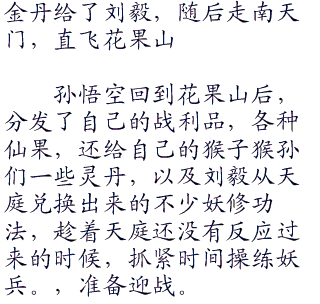 金丹给了刘毅，随后走南天
门，直飞花果山
孙悟空回到花果山后，
分发了自己的战利品，各种
仙果，还给自己的猴子猴孙
们一些灵丹，以及刘毅从天
庭兑换出来的不少妖修功
法，趁着天庭还没有反应过
来的时候，抓紧时间操练妖
兵。，准备迎战。